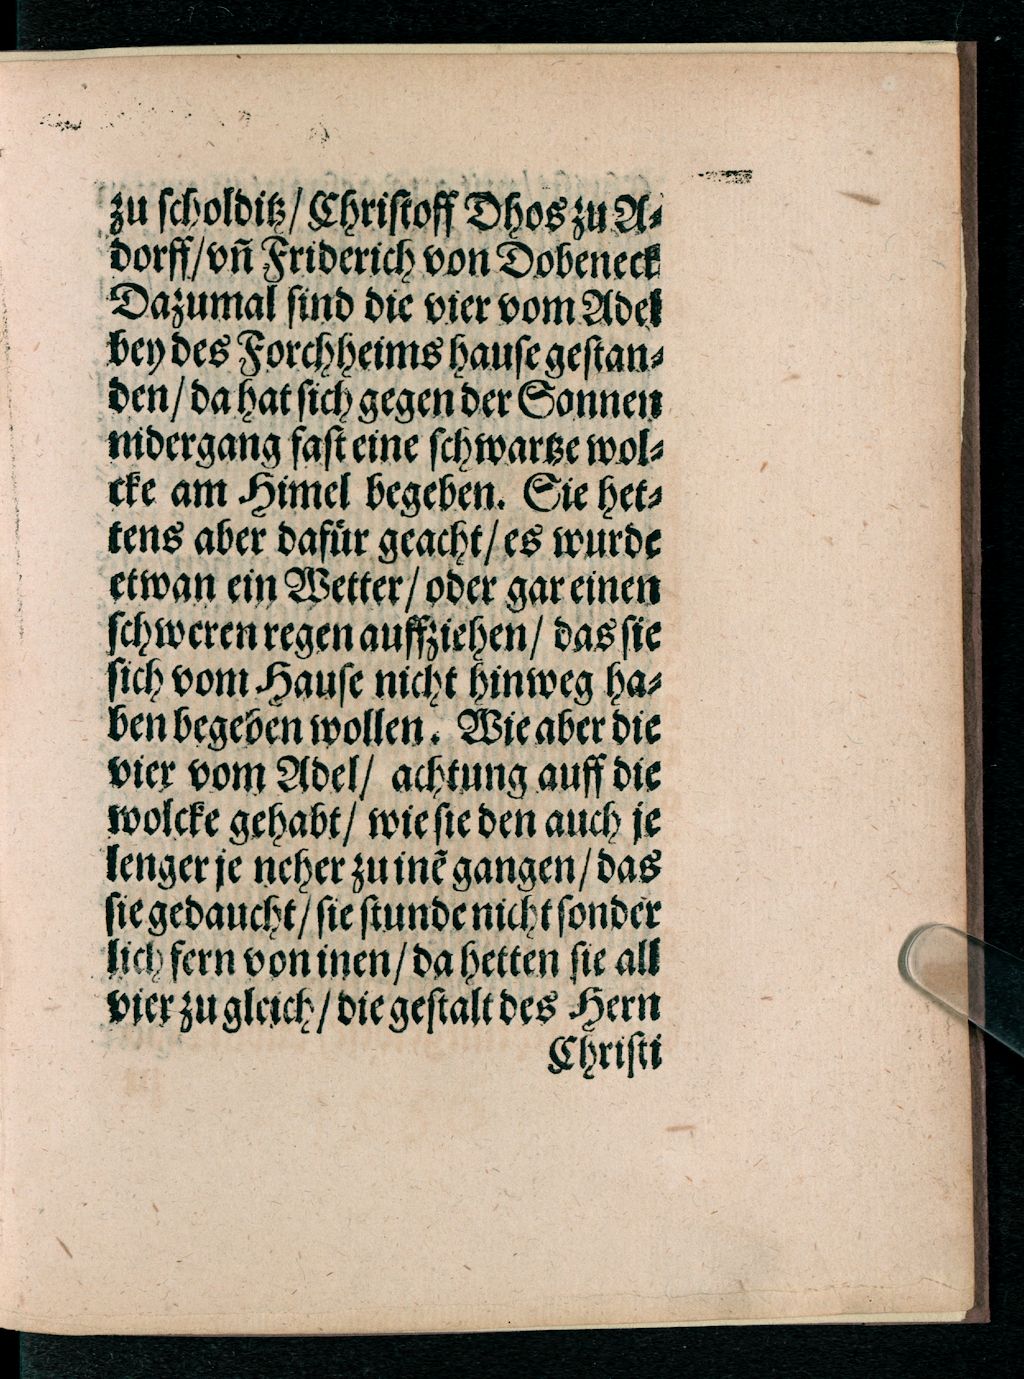 zu ſcholditz/ Chriſtoff Dhos zu A⸗
dorff/ vñ Friderich von Dobeneck
Dazumal ſind die vier vom Adel
bey des Forchheims hauſe geſtan⸗
den/ da hat ſich gegen der Sonnen
nidergang faſt eine ſchwartze wol⸗
cke am Himel begeben. Sie het⸗
tens aber dafür geacht/ es wurde
etwan ein Wetter/ oder gar einen
ſchweren regen auffziehen/ das ſie
ſich vom Hauſe nicht hinweg ha⸗
ben begeben wollen. Wie aber die
vier vom Adel/ achtung auff die
wolcke gehabt/ wie ſie den auch je
lenger je neher zu inẽ gangen/ das
ſie gedaucht/ ſie ſtunde nicht ſonder
lich fern von inen/ da hetten ſie all
vier zu gleich/ die geſtalt des Hern
Chriſti